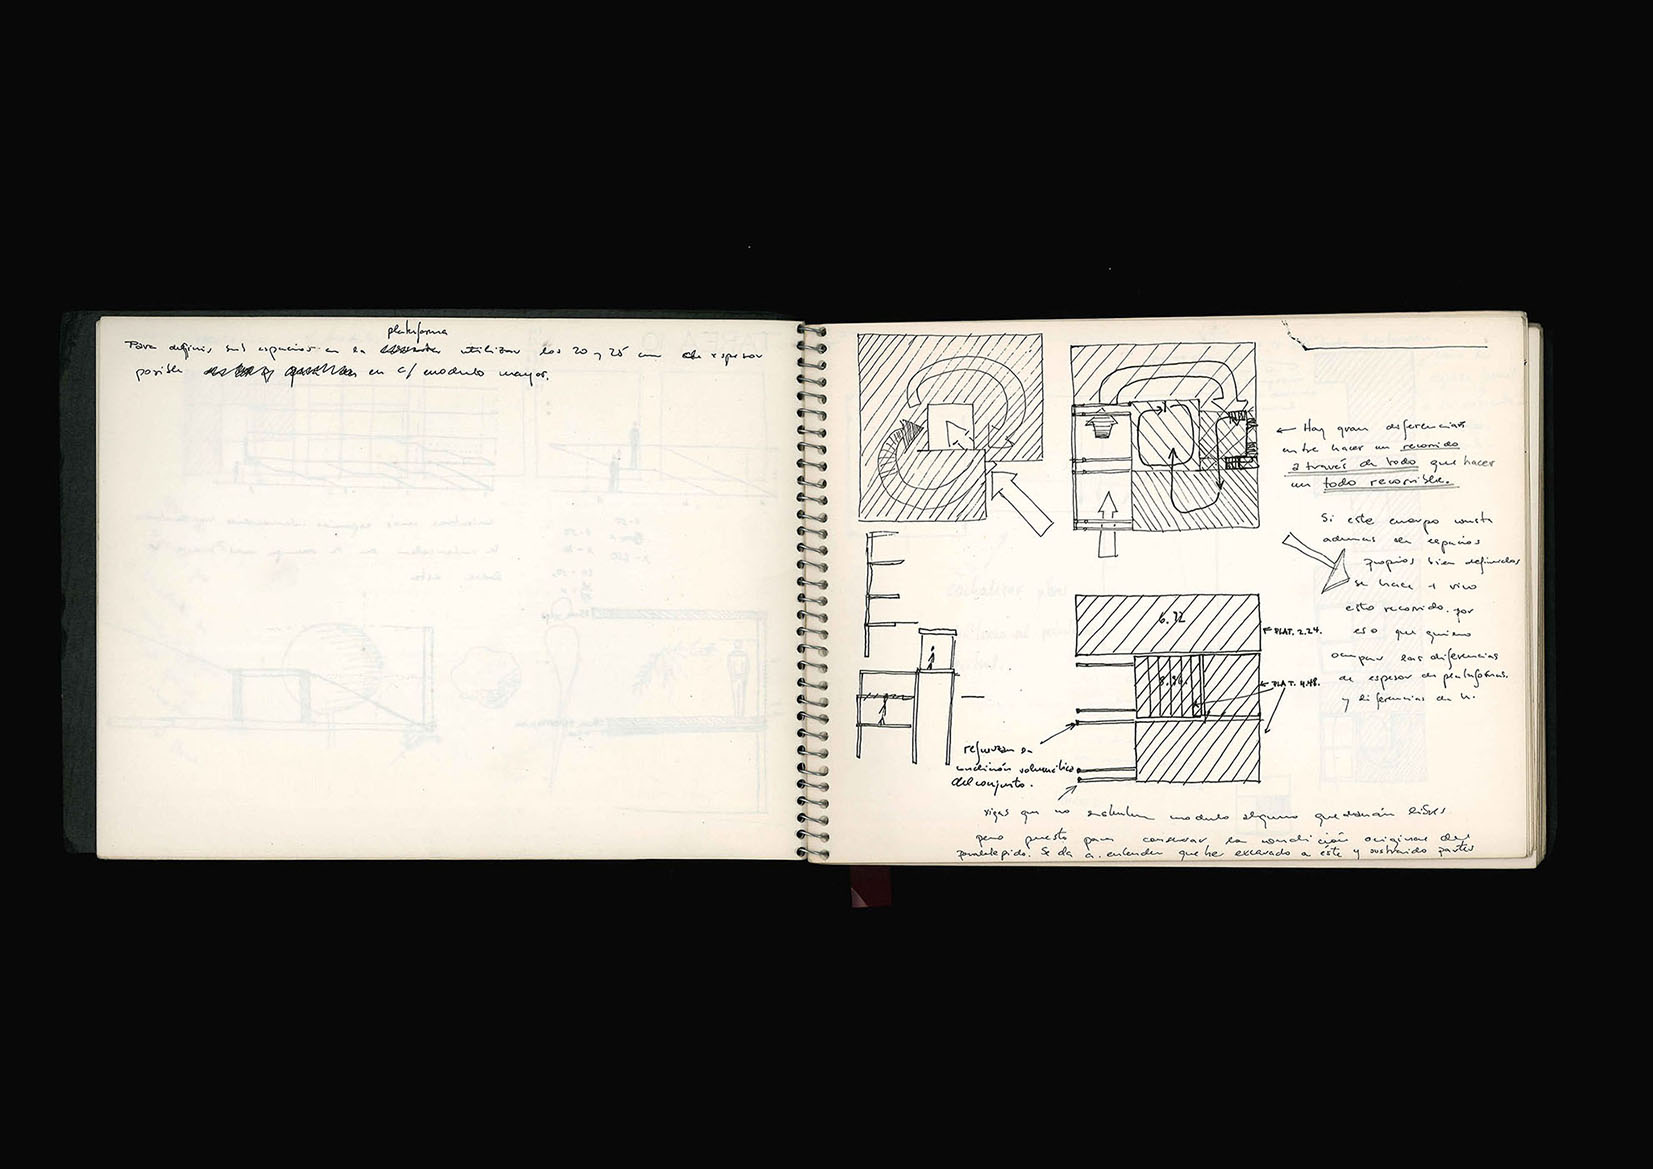 plataforma
Para definir sub espacios en la utilizar los 20 y 25 cm de espesor
posible en c/ modulo mayor.
← Hay gran diferencias
entre hacer un recorrido
a través de todo que hacer
un todo recorrible.
Si este cuerpo consta
ademas de espacios
propios bien definidos
se hace + vivo
este recorrido. por
eso que quiero
ocupar las diferencias
de espesor de plataformas.
y diferencias de h.
6.32
PLAT. 2.24.
PLAT. 4.48.
refuerzan la
condición volumétrica
del conjunto.
vigas que no modulo alguno quedarán libres
pero puesto para conservar la condición origin del
paralelepipedo. Se da a entender que he excavado a éste y sustraido partes